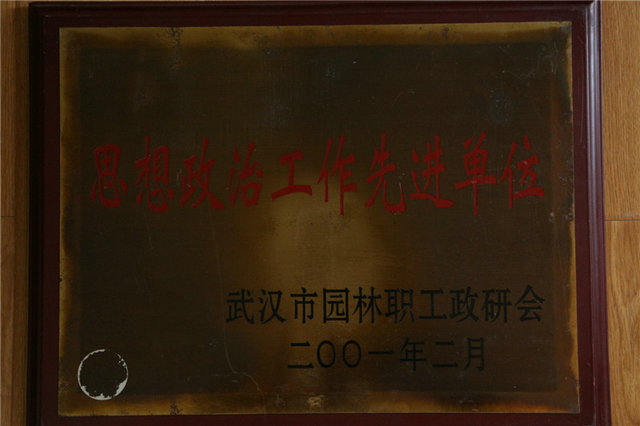 思想政治工作先进单位
武汉市园林职工政研会
二〇〇一年二月